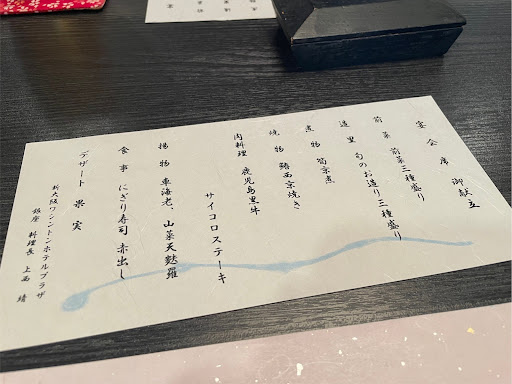 宴会席 御献立
前菜 前菜三種盛り
造里 旬のお造り三種盛り
煮物 筍京煮
焼物 鰆西京焼き
肉料理 鹿児島黒牛
サイコロステーキ
揚物 車海老、山菜天麩羅
食事 にぎり寿司 赤出し
デザート 果実
新大阪ワシントンホテルプラザ
銀座 料理長 上西 靖